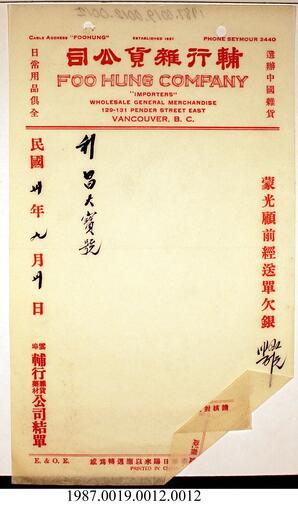 1987.0019.0012.0012
CABLE ADDRESS "FOOHUNG"
ESTABLISHED 1921
PHONE SEYMOUR 3440
司公貨雜行輔
選辦中國雜貨
日常用品俱全
FOO HUNG COMPANY
"IMPORTERS"
WHOLESALE GENERAL MERCHANDISE
129-131 PENDER STREET EAST
VANCOUVER, B. C.
蒙光顧前經送單欠銀
利昌大寶號
民國卅年九月卅日
雲埠輔行雜貨藥材公司結單
E. & O. E.
PRINTED IN
1987.0019.0012.0012